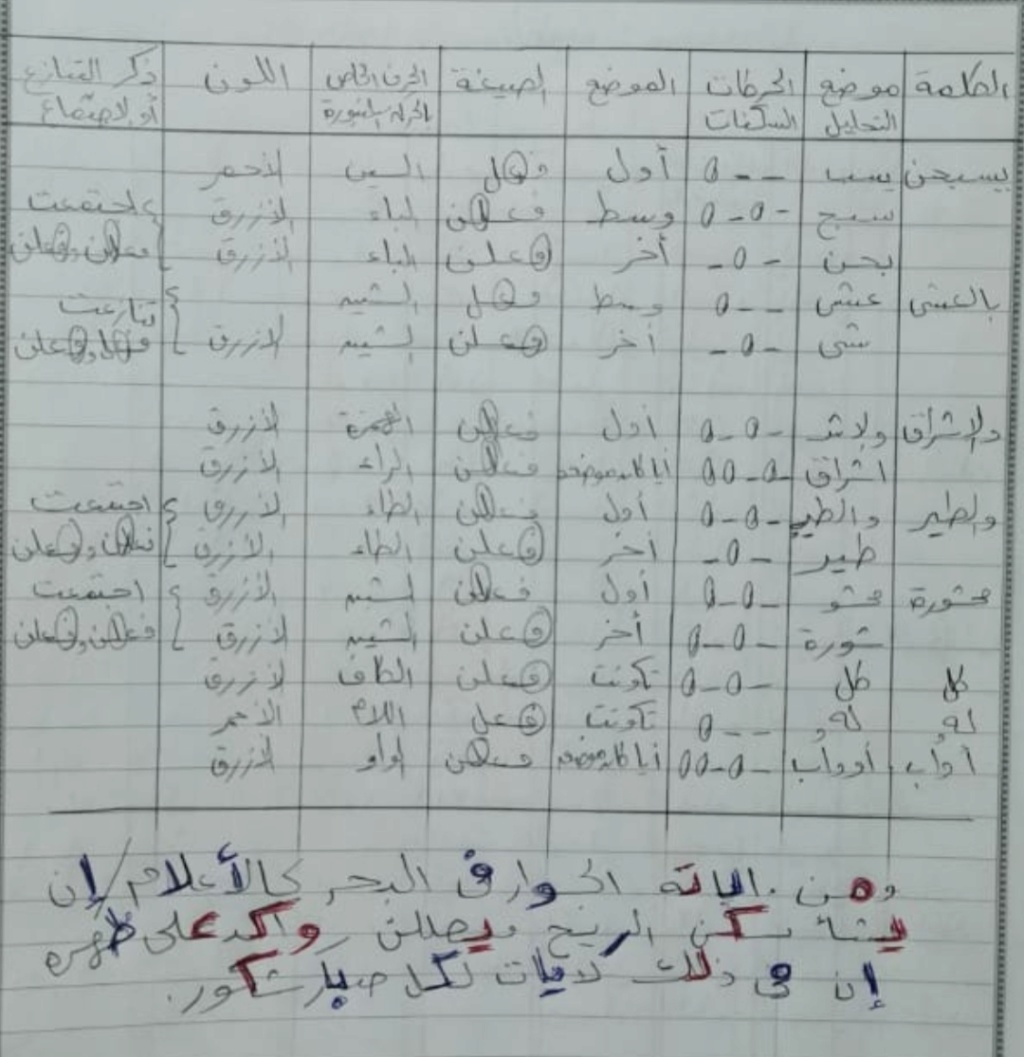 الكلمة موضع التحليل الحركات السكنات الموضع الصيغة الحرف الخاص اللون ذكر التنازع أو الاجتماع
يسبحن يسب - - o أول فعل السين الأحمر
سبح - o - o وسط فعلن الباء الأزرق اجتمعت
بحن - o - أخر فعلن الباء الأزرق فعلن وفعلن
بالعشى عشى - - o وسط فعل الشين تنازعت
شى - o - أخر فعلن الشين الأزرق
والإشراق ولاشر - o - o أول فعلن الهمزة الأزرق
اشراق - o - o o فعلن الراء الأزرق
والطير والطي - o - o أول فعلن الطاء الأزرق اجتمعت
طير - o - أخر فعلن الطاء الأزرق فعلن وفعلن
محشورة محشو - o - o أول فعلن الشين الأزرق اجتمعت
شورة - o - o أخر فعلن الشين الأزرق فعلن وفعلن
كل كل - o - o تكونت فعلن الكاف الأزرق
له له و - - o تكونت فعل اللام الأحمر
أواب أوواب - o - o o فعلن الواو الأزرق
ومن ءاياته الجوار فى البحر كالأعلام / إن
يشأ يسكن الريح فيظللن رواكد على ظهره
إن فى ذلك لايات لكل صبار شكور.